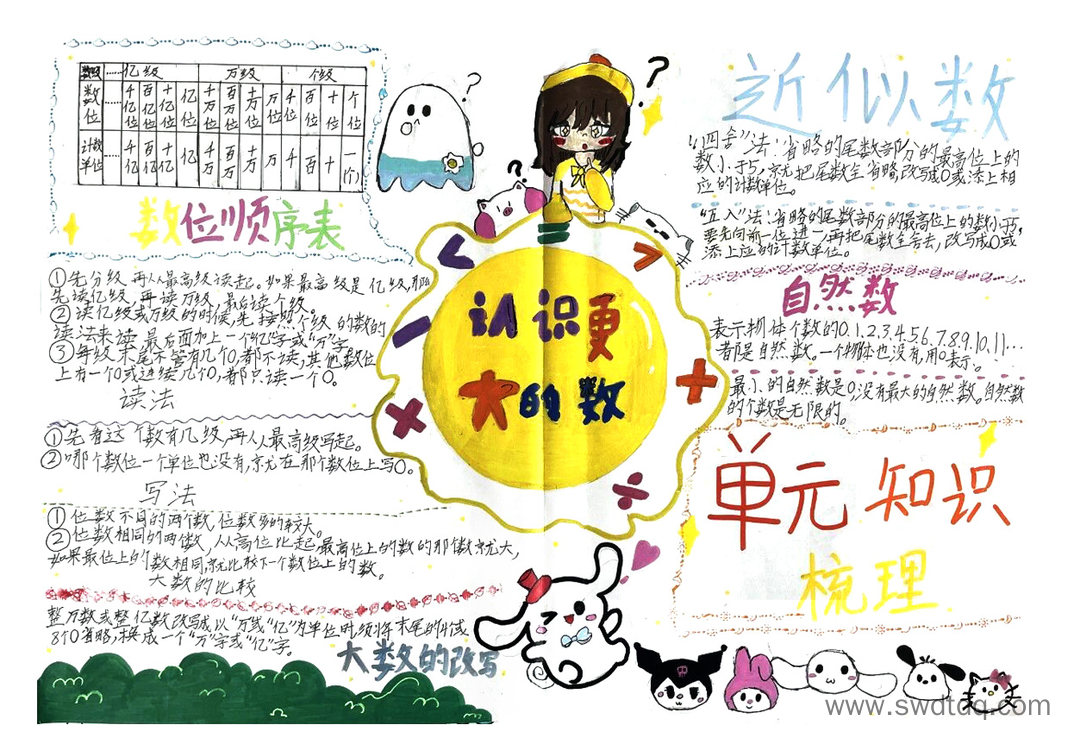 数级 …… 亿级 万级 个级
数位 …… 千亿位 百亿位 十亿位 亿位 千万位 百万位 十万位 万位 千位 百位 十位 个位
计数单位 …… 千亿 百亿 十亿 亿 千万 百万 十万 万 千 百 十 一(个)
数位顺序表
①先分级,再从最高级读起。如果最高级是亿级,那么
先读亿级,再读万级,最后读个级。
②读亿级或万级的时候,先按照个级的数的
读法来读,最后面加上一个“亿”字或“万”字
③每级末尾不管有几个0,都不读,其他数位
上有一个0或连续几个0,都只读一个0。
读法
①先看这个数有几级,再从最高级写起。
②哪个数位一个单位也没有,就在那个数位上写0。
写法
①位数不同的两个数,位数多的较大。
②位数相同的两个数,从高位比起,最高位上的数的那个数就大,
如果最位上的数相同,就比较下一个数位上的数。
大数的比较
整万数或整亿数改写成以“万或“亿”为单位时,须将末尾的4个或
8个0省略,换成一个“万”字或“亿”字。
大数的改写
认识更
大的数
? ? ?
< > − + × ÷
近似数
“四舍”法:省略的尾数部分的最高位上的
数小于5,就把尾数全省略,改写成0或添上相
应的计数单位。
“五入”法:省略的尾数部分的最高位上的数小于5,
要先向前一位进一,再把尾数全舍去,改写成0或
添上应的计数单位。
自然数
表示物体个数的0.1.2.3.4.5.6.7.8.9.10.11…
都是自然数。一个物体也没有,用0表示。
最小的自然数是0,没有最大的自然数。自然数
的个数是无限的。
单元知识
梳理
www.swdtdq.com